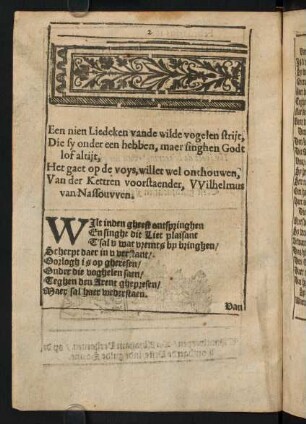 2
Een nieu Liedeken vande wilde vogelen strijt,
Die sy onder een hebben, maer singhen Godt
lof altijt,
Het gaet op de voys, willet wel onthouwen,
Van der Kettren voorstaender, VVilhelmus
van Nassouvven.
WIlt inden gheest ontspringhen
En singht dit Liet plaisant
T'sal u wat vremts by bringhen/
Scherpt daer in u verstant/
Oorlogh is op gheresen/
Onder die voghelen saen/
Teghen den Arent ghepresen/
Maer sal haer wederstaen.
Dan